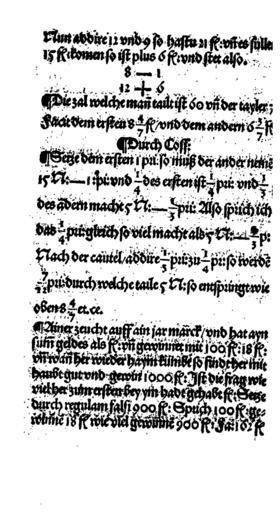 Nun addire 12 vnd 9 so hastu 21 fl: vñ es sullen
15 fl: komen so ist plus 6 fl: vnd stet also.
8 — 1
12 + 6
¶Die zal welche man tailt ist 60 vñ der tayler 7
Facit dem ersten 8 4/7 fl/ vnd dem andern 6 3/7 fl
¶Durch Coss:
¶Setze dem ersten 1 pri: so muß der ander nemē
15 N: — 1 pri: vnd 1/4 des ersten ist 1/4 pri: vnd 1/3
des ādern macht 5 N: — 1/3 pri: Also sprich ich
das 1/4 pri: gleich so viel macht als 5 N: — pri:
Nach der cautel/ addire 1/3 pri: zu 1/4 pri: so werdē
7/12 pri: durch welche taile 5 N: so entspringt wie
oben 8 4/7 et.ce.
¶Ainer zeucht auff ain jar marck/ vnd hat ayn
sum̃ geldes als fl: vñ gewinnet mit 100 fl: 18 fl:
vñ wañ her wieder haym kumbt so findt her mit
haubt gut vnd gewin 1000 fl: Ist die frag wie
viel her zum ersten bey ym hadt gehabt fl: Setze
durch regulam falsi 900 fl: Sprich 100 fl: ge-
winnē 18 fl wie viel gewinnē 900 fl: Fa: 162 fl